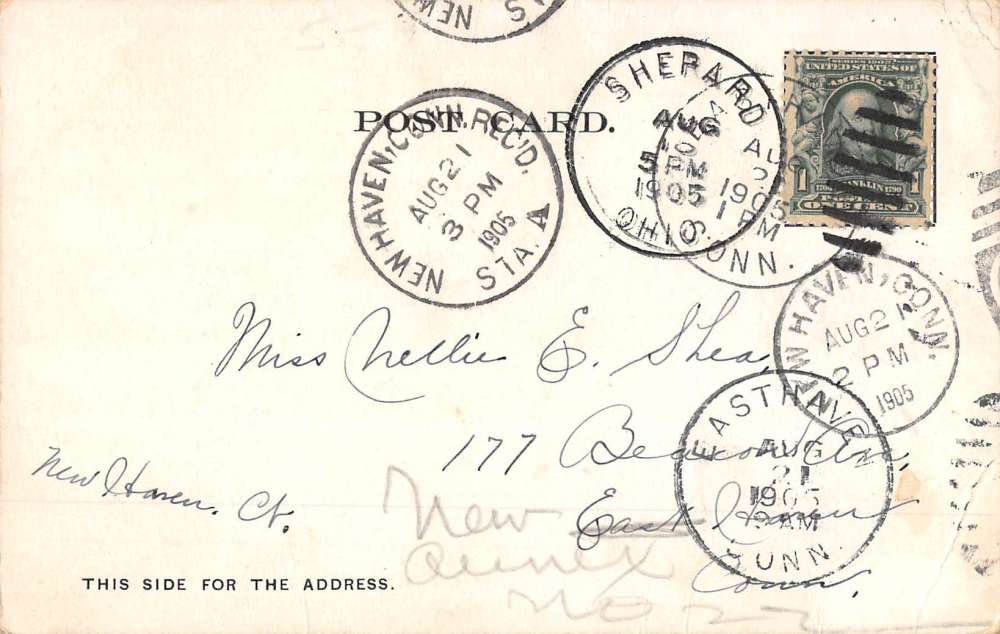 NEW
POST CARD.
SERIES 1902
UNITED STATES OF
AMERICA
1 1
FRANKLIN
POSTAGE
ONE CENT
SHEPARD
AUG
5 PM
1905
OHIO
1905
1 PM
CONN.
NEW HAVEN, CONN. REC'D.
AUG 21
3 PM
1905
STA. A
NEW HAVEN, CONN.
AUG 21
2 PM
1905
Miss Nellie E. Shea,
177 Beacon Ave,
East Haven
Conn,
EAST HAVEN
AUG
21
1905
9 AM
CONN.
New Haven, Ct.
New
Annex
THIS SIDE FOR THE ADDRESS.